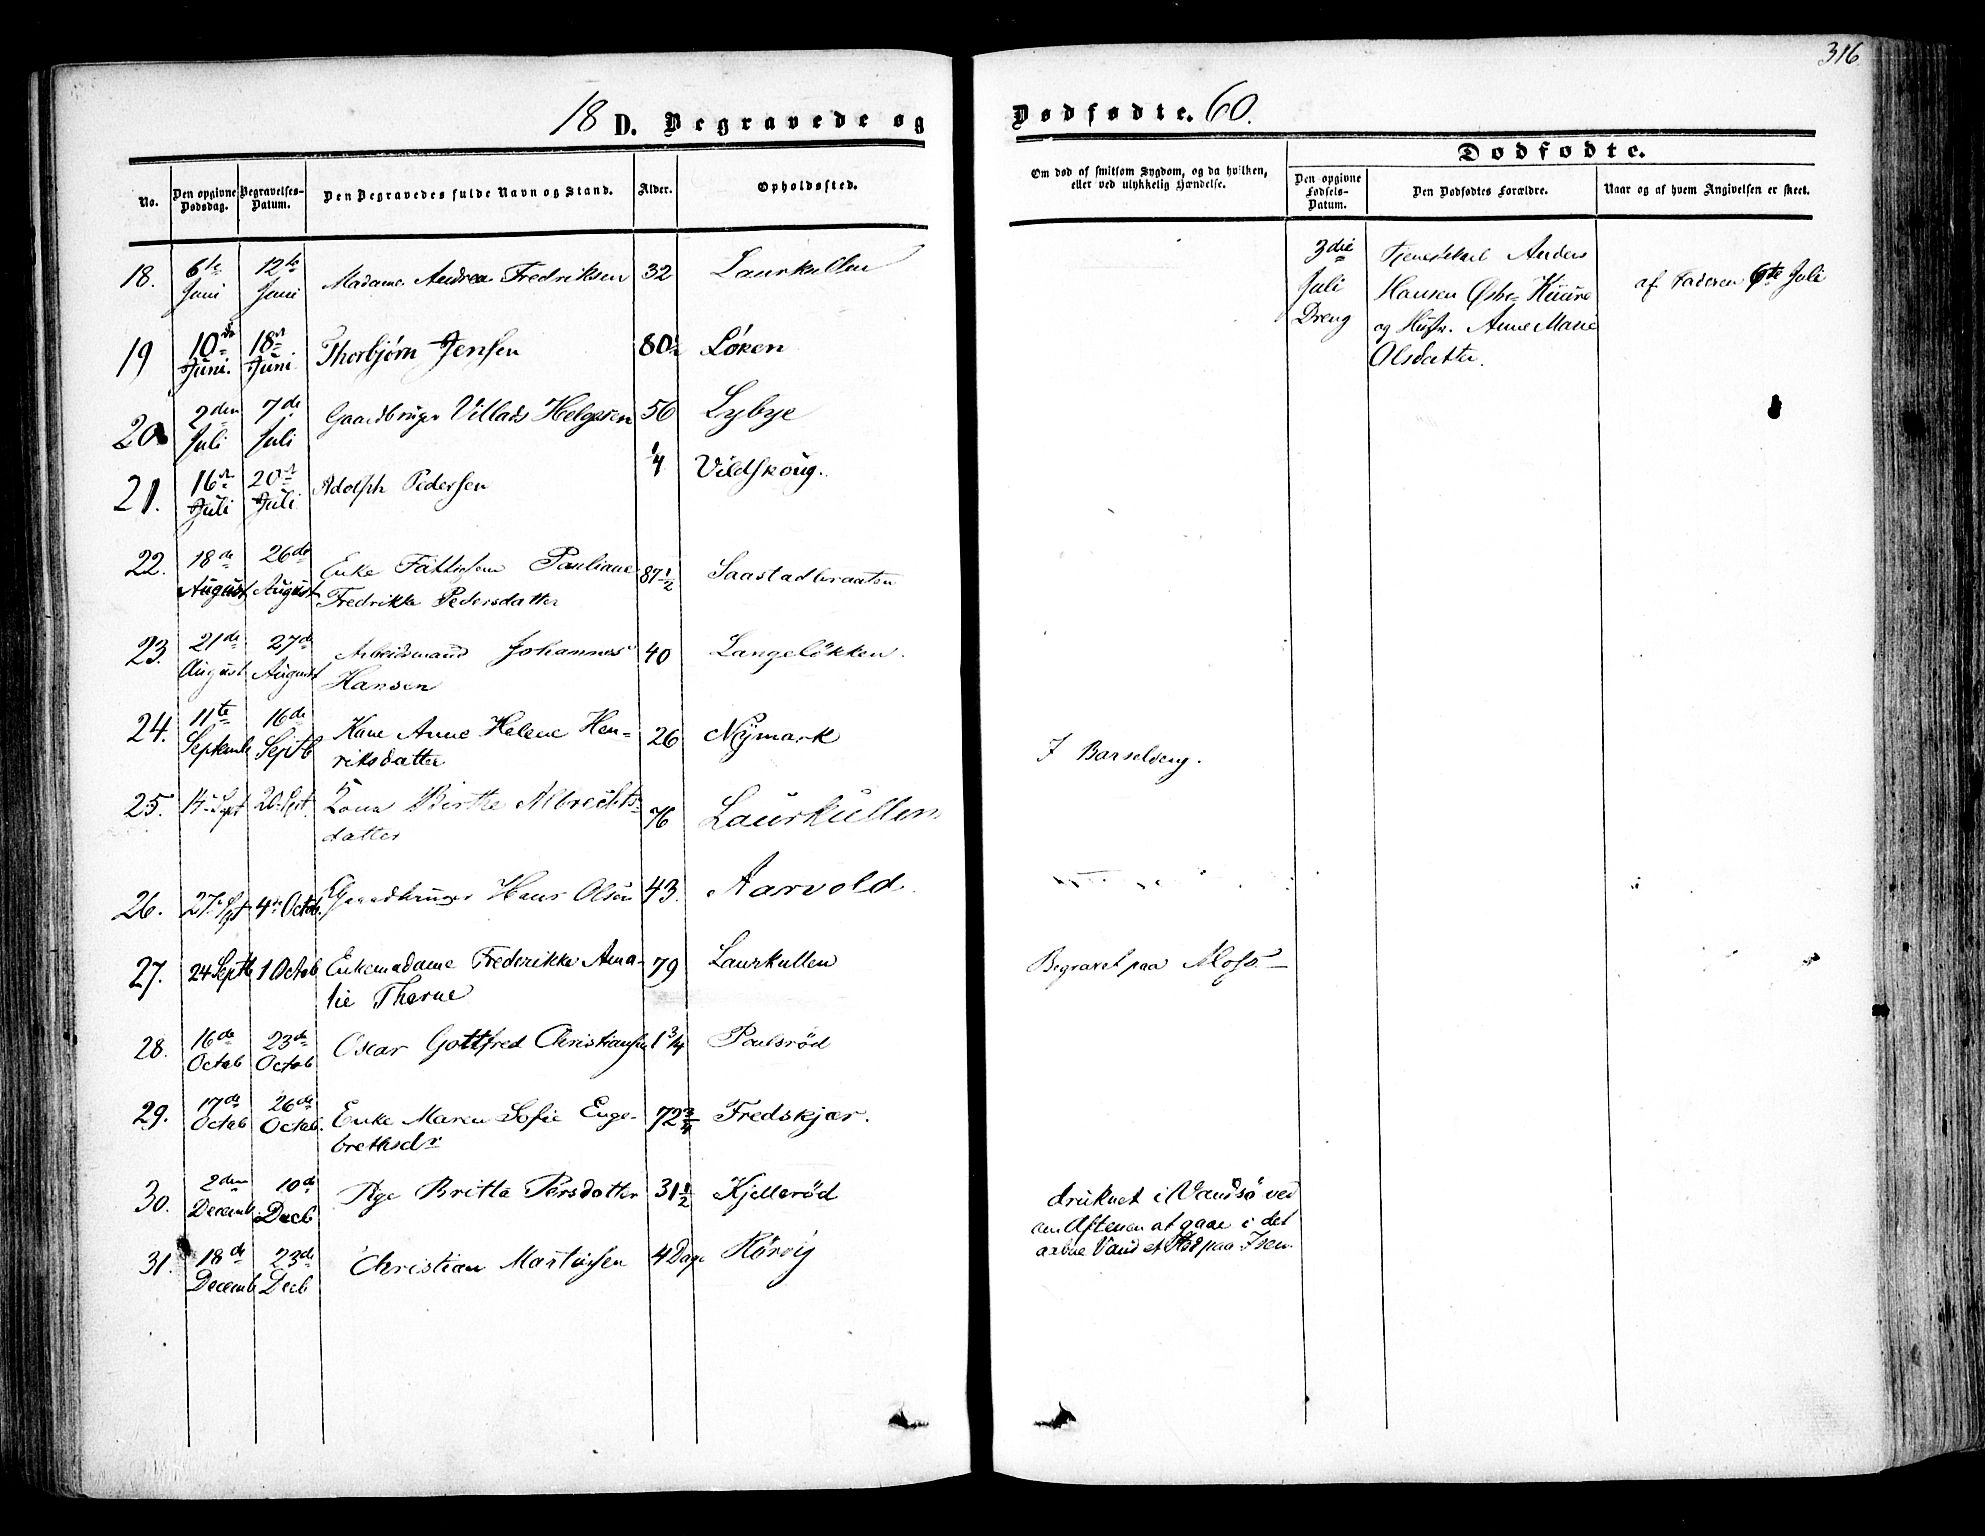 316
18 D. Begravede og Dødfødte. 60.
No.
Den opgivne Dødsdag.
Begravelses-Datum.
Den Begravedes fulde Navn og Stand.
Alder.
Opholdssted.
Om død af smitsom Sygdom, og da hvilken,
eller ved ulykkelig Hændelse.
Dødfødte.
Den opgivne Fødsels-Datum.
Den Dødfødtes Forældre.
Naar og af hvem Angivelsen er skeet.
18. 6te Juni 12te Juni Madame Andrea Fredriksen 32 Laurkullen
3die Juli Dreng
Tjenestekarl Anders
Hansen Østre Kuure
og Hustr. Anne Marie
Olsdatter.
af Faderen 6te Juli
19 10de Juni. 18de Juni Thorbjørn Jensen 80½ Løken
20. 2den Juli 7de Juli Gaardbruger Villads Helgesen 56 Lybye
21. 16de Juli 20de Juli Adolph Pedersen ¼ Vildskoug.
22. 18de August 26de August Enke Fattiglem Pauliane
Fredrikke Pedersdatter 87½ Saastadbraaten
23. 21de August 27de August Arbeidsmand Johannes
Hansen 40 Langeløkken.
24. 11te Septemb 16de Septb Kone Anne Helene Hen-
riksdatter 26 Nÿmark I Barselseng.
25. 14. Sept 20. Sept. Kona Birthe Albrechts-
datter 76 Laurkullen
26. 27. Spt 4de Octob. Gaardbruger Hans Olsen 43. Aarvold.
27. 24 Septb 1 Octob Enkemadame Frederikke Ama-
lie Thorne 79 Laurkullen Begravet paa Moss.
28. 16de Octob 23de Octob Oscar Gottfred Christiansen 1¾ Paulsrød
29. 17de Octob 26de Octob. Enke Maren Sofie Enge-
brethsdr 72¾ Fredskjær.
30. 2den Decemb 10de Decb Pige Britta Persdatter 31½ Kjellerød
druknet i Vandsø ved
om Aftenen at gaae i det
aabne Vand et Sted paa Isen.
31. 18de Decemb 23de Decb Christian Martinsen 4 Dage Kørvig